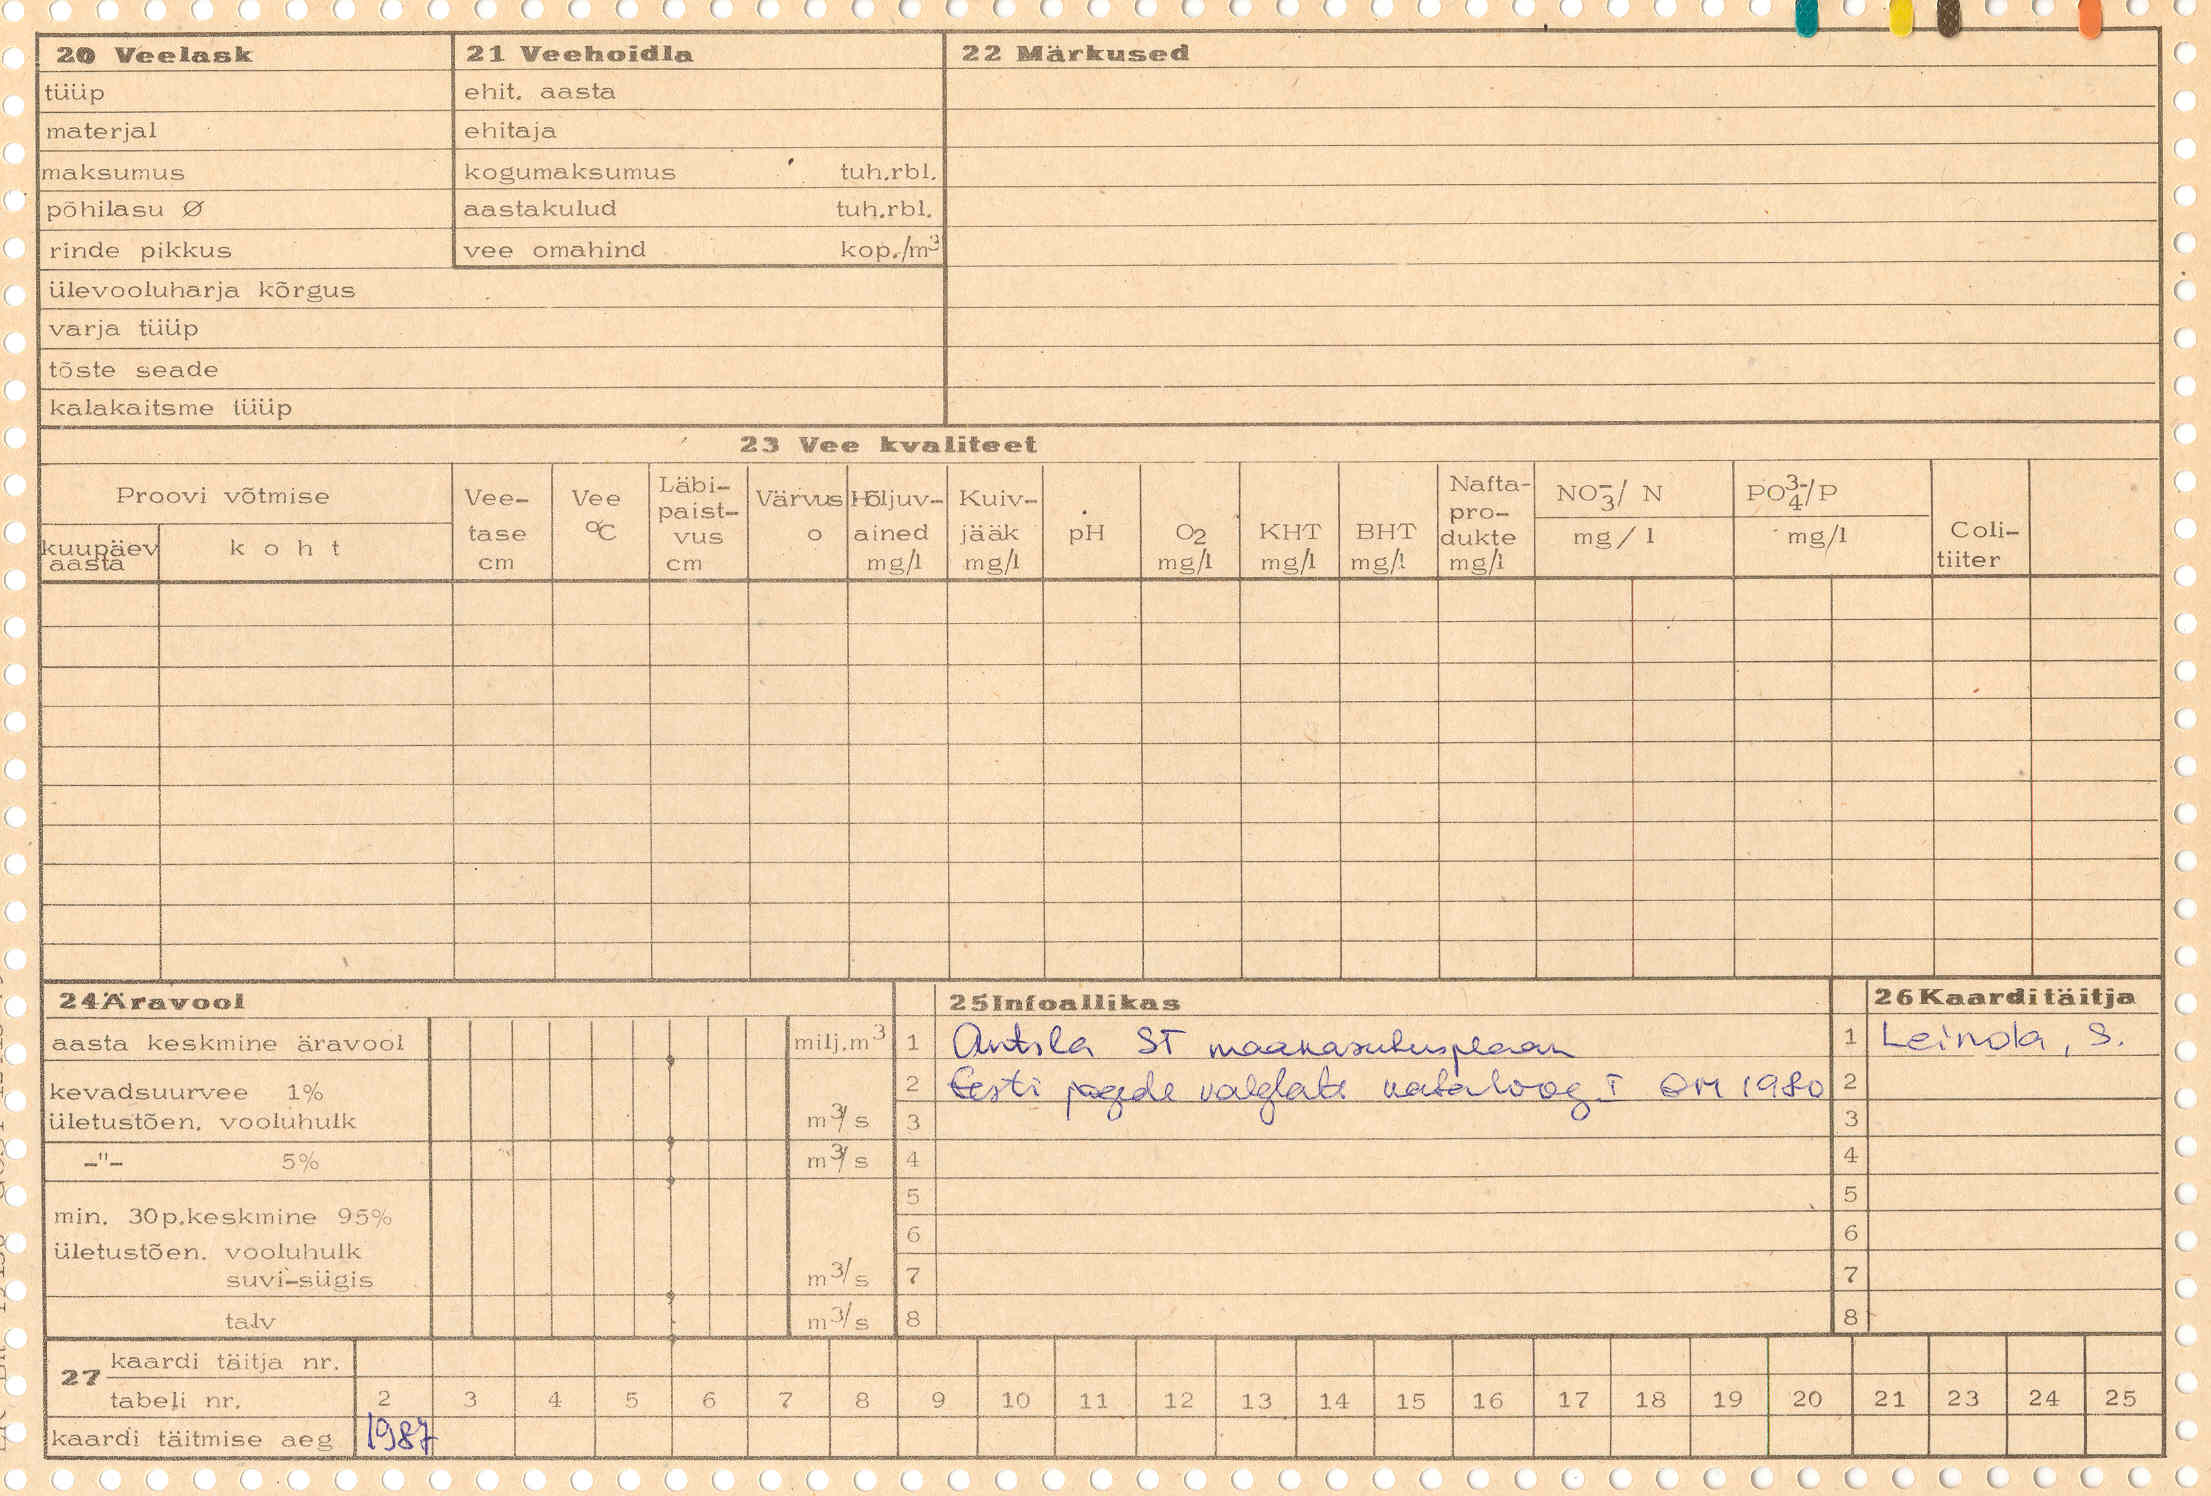 20 Veelask
tüüp
materjal
maksumus
põhilasu Ø
rinde pikkus
ülevooluharja kõrgus
varja tüüp
tõste seade
kalakaitsme tüüp
21 Veehoidla
ehit. aasta
ehitaja
kogumaksumus tuh.rbl.
aastakulud tuh.rbl.
vee omahind kop./m³
22 Märkused
23 Vee kvaliteet
Proovi võtmise
kuupäev
aasta
koht
Vee-
tase
cm
Vee
°C
Läbi-
paist-
vus
cm
Värvus
o
Hõljuv-
ained
mg/l
Kuiv-
jääk
mg/l
pH
O2
mg/l
KHT
mg/l
BHT
mg/l
Nafta-
pro-
dukte
mg/l
NO₃⁻/ N
mg/l
PO₄³⁻/P
mg/l
Coli-
tiiter
24 Äravool
aasta keskmine äravool milj.m³
kevadsuurvee 1%
ületustõen. vooluhulk m³/s
-"- 5% m³/s
min. 30p.keskmine 95%
ületustõen. vooluhulk
suvi-sügis m³/s
talv m³/s
25 Infoallikas
1 Antsla ST maakasutusplaan
2 Eesti jõgede valglate kataloog I EM 1980
3
4
5
6
7
8
26 Kaarditäitja
1 Leinola, S.
2
3
4
5
6
7
8
27
kaardi täitja nr.
tabeli nr. 2 3 4 5 6 7 8 9 10 11 12 13 14 15 16 17 18 19 20 21 23 24 25
kaardi täitmise aeg 1987